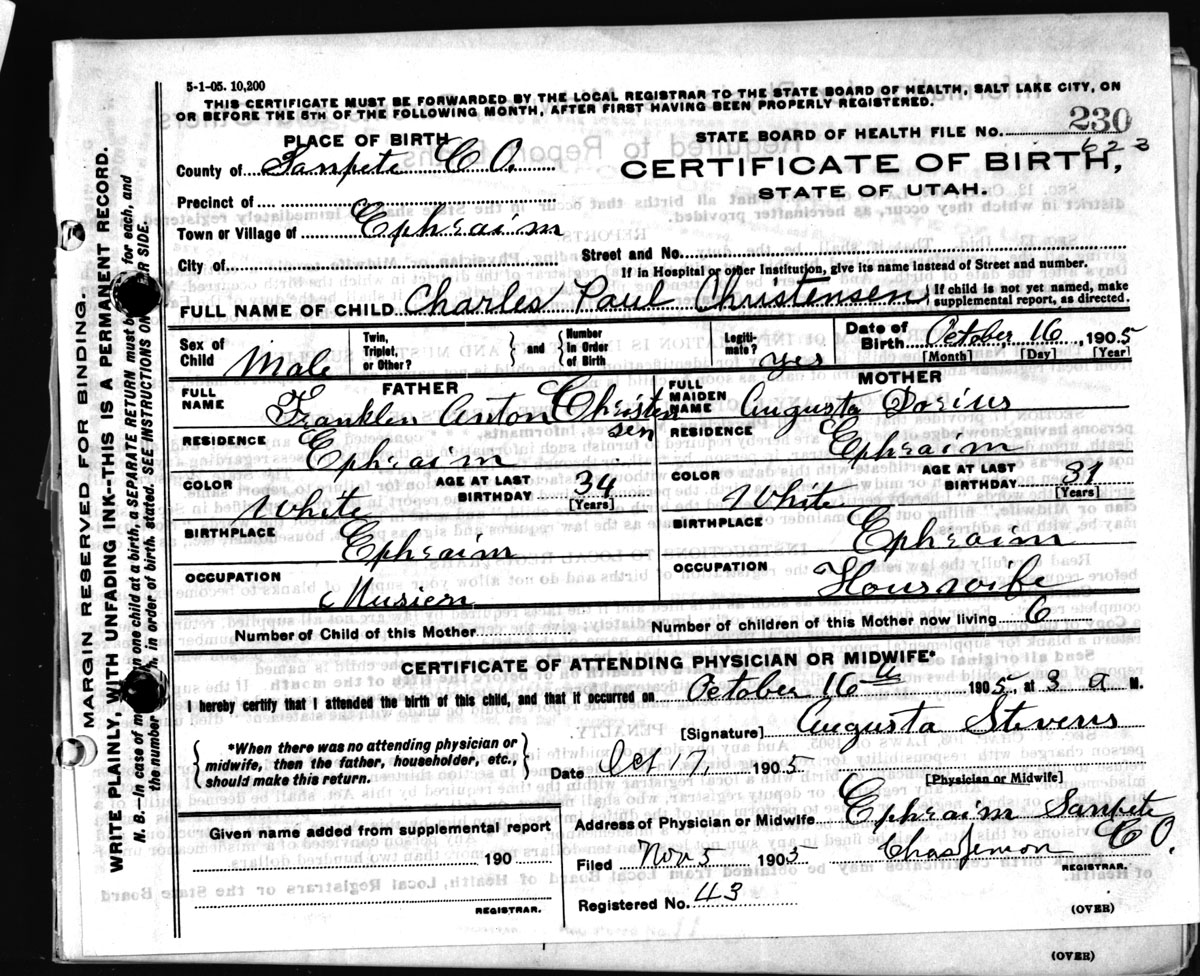 5-1-05. 10,200
THIS CERTIFICATE MUST BE FORWARDED BY THE LOCAL REGISTRAR TO THE STATE BOARD OF HEALTH, SALT LAKE CITY, ON
OR BEFORE THE 5TH OF THE FOLLOWING MONTH, AFTER FIRST HAVING BEEN PROPERLY REGISTERED.
PLACE OF BIRTH
STATE BOARD OF HEALTH FILE NO. 230
623
County of Sanpete CO.
CERTIFICATE OF BIRTH,
STATE OF UTAH.
Precinct of
Town or Village of Ephraim
City of
Street and No.
If in Hospital or other Institution, give its name instead of Street and number.
FULL NAME OF CHILD Charles Paul Christensen } If child is not yet named, make supplemental report, as directed.
Sex of Child Male
Twin, Triplet, or Other? } and { Number In Order of Birth
Legitimate? yes
Date of Birth October 16 1905
[Month] [Day] [Year]
FATHER
FULL NAME Franklin Anton Christensen
RESIDENCE Ephraim
COLOR White
AGE AT LAST BIRTHDAY 34
[Years]
BIRTHPLACE Ephraim
OCCUPATION Musicen
MOTHER
FULL MAIDEN NAME Augusta Dorius
RESIDENCE Ephraim
COLOR White
AGE AT LAST BIRTHDAY 31
[Years]
BIRTHPLACE Ephraim
OCCUPATION Houswife
Number of Child of this Mother
Number of children of this Mother now living 6
CERTIFICATE OF ATTENDING PHYSICIAN OR MIDWIFE*
I hereby certify that I attended the birth of this child, and that it occurred on October 16th 1905, at 3 a M.
[Signature] Augusta Stevens
*When there was no attending physician or
midwife, then the father, householder, etc.,
should make this return.
Date Oct 17, 1905
[Physician or Midwife]
Address of Physician or Midwife Ephraim Sanpete CO.
Given name added from supplemental report
190
REGISTRAR.
Filed Nov 5 1903
REGISTRAR.
Registered No. 43
(OVER)
(OVER)
MARGIN RESERVED FOR BINDING.
WRITE PLAINLY, WITH UNFADING INK--THIS IS A PERMANENT RECORD.
N. B.--In case of more than one child at a birth, a SEPARATE RETURN must be for each, and
the number in order of birth, stated. SEE INSTRUCTIONS ON SIDE.